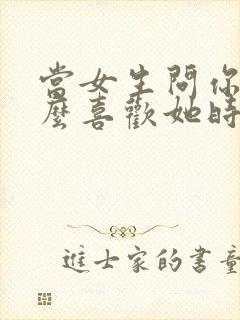 當女生問你
麼喜歡她時
進士家的書童